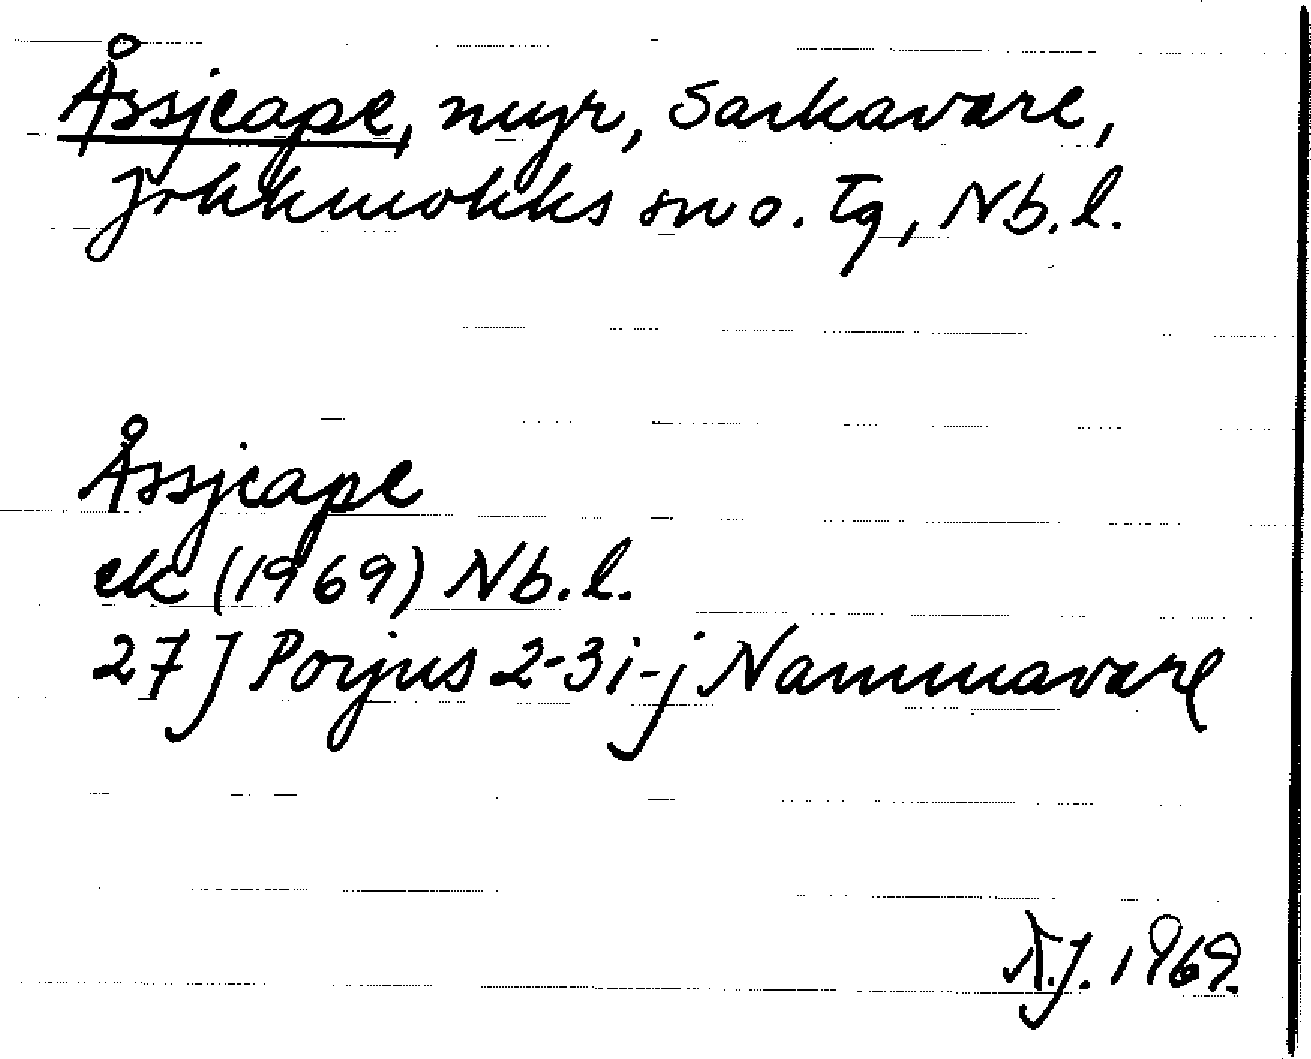 Åssjeape, myr, Sarkavare,
Jokkmokks sn o. tg, Nb. l.
Åssjeape
ek (1969) Nb. l.
27 J Porjus 2-3 i-j Nammavare
1969.